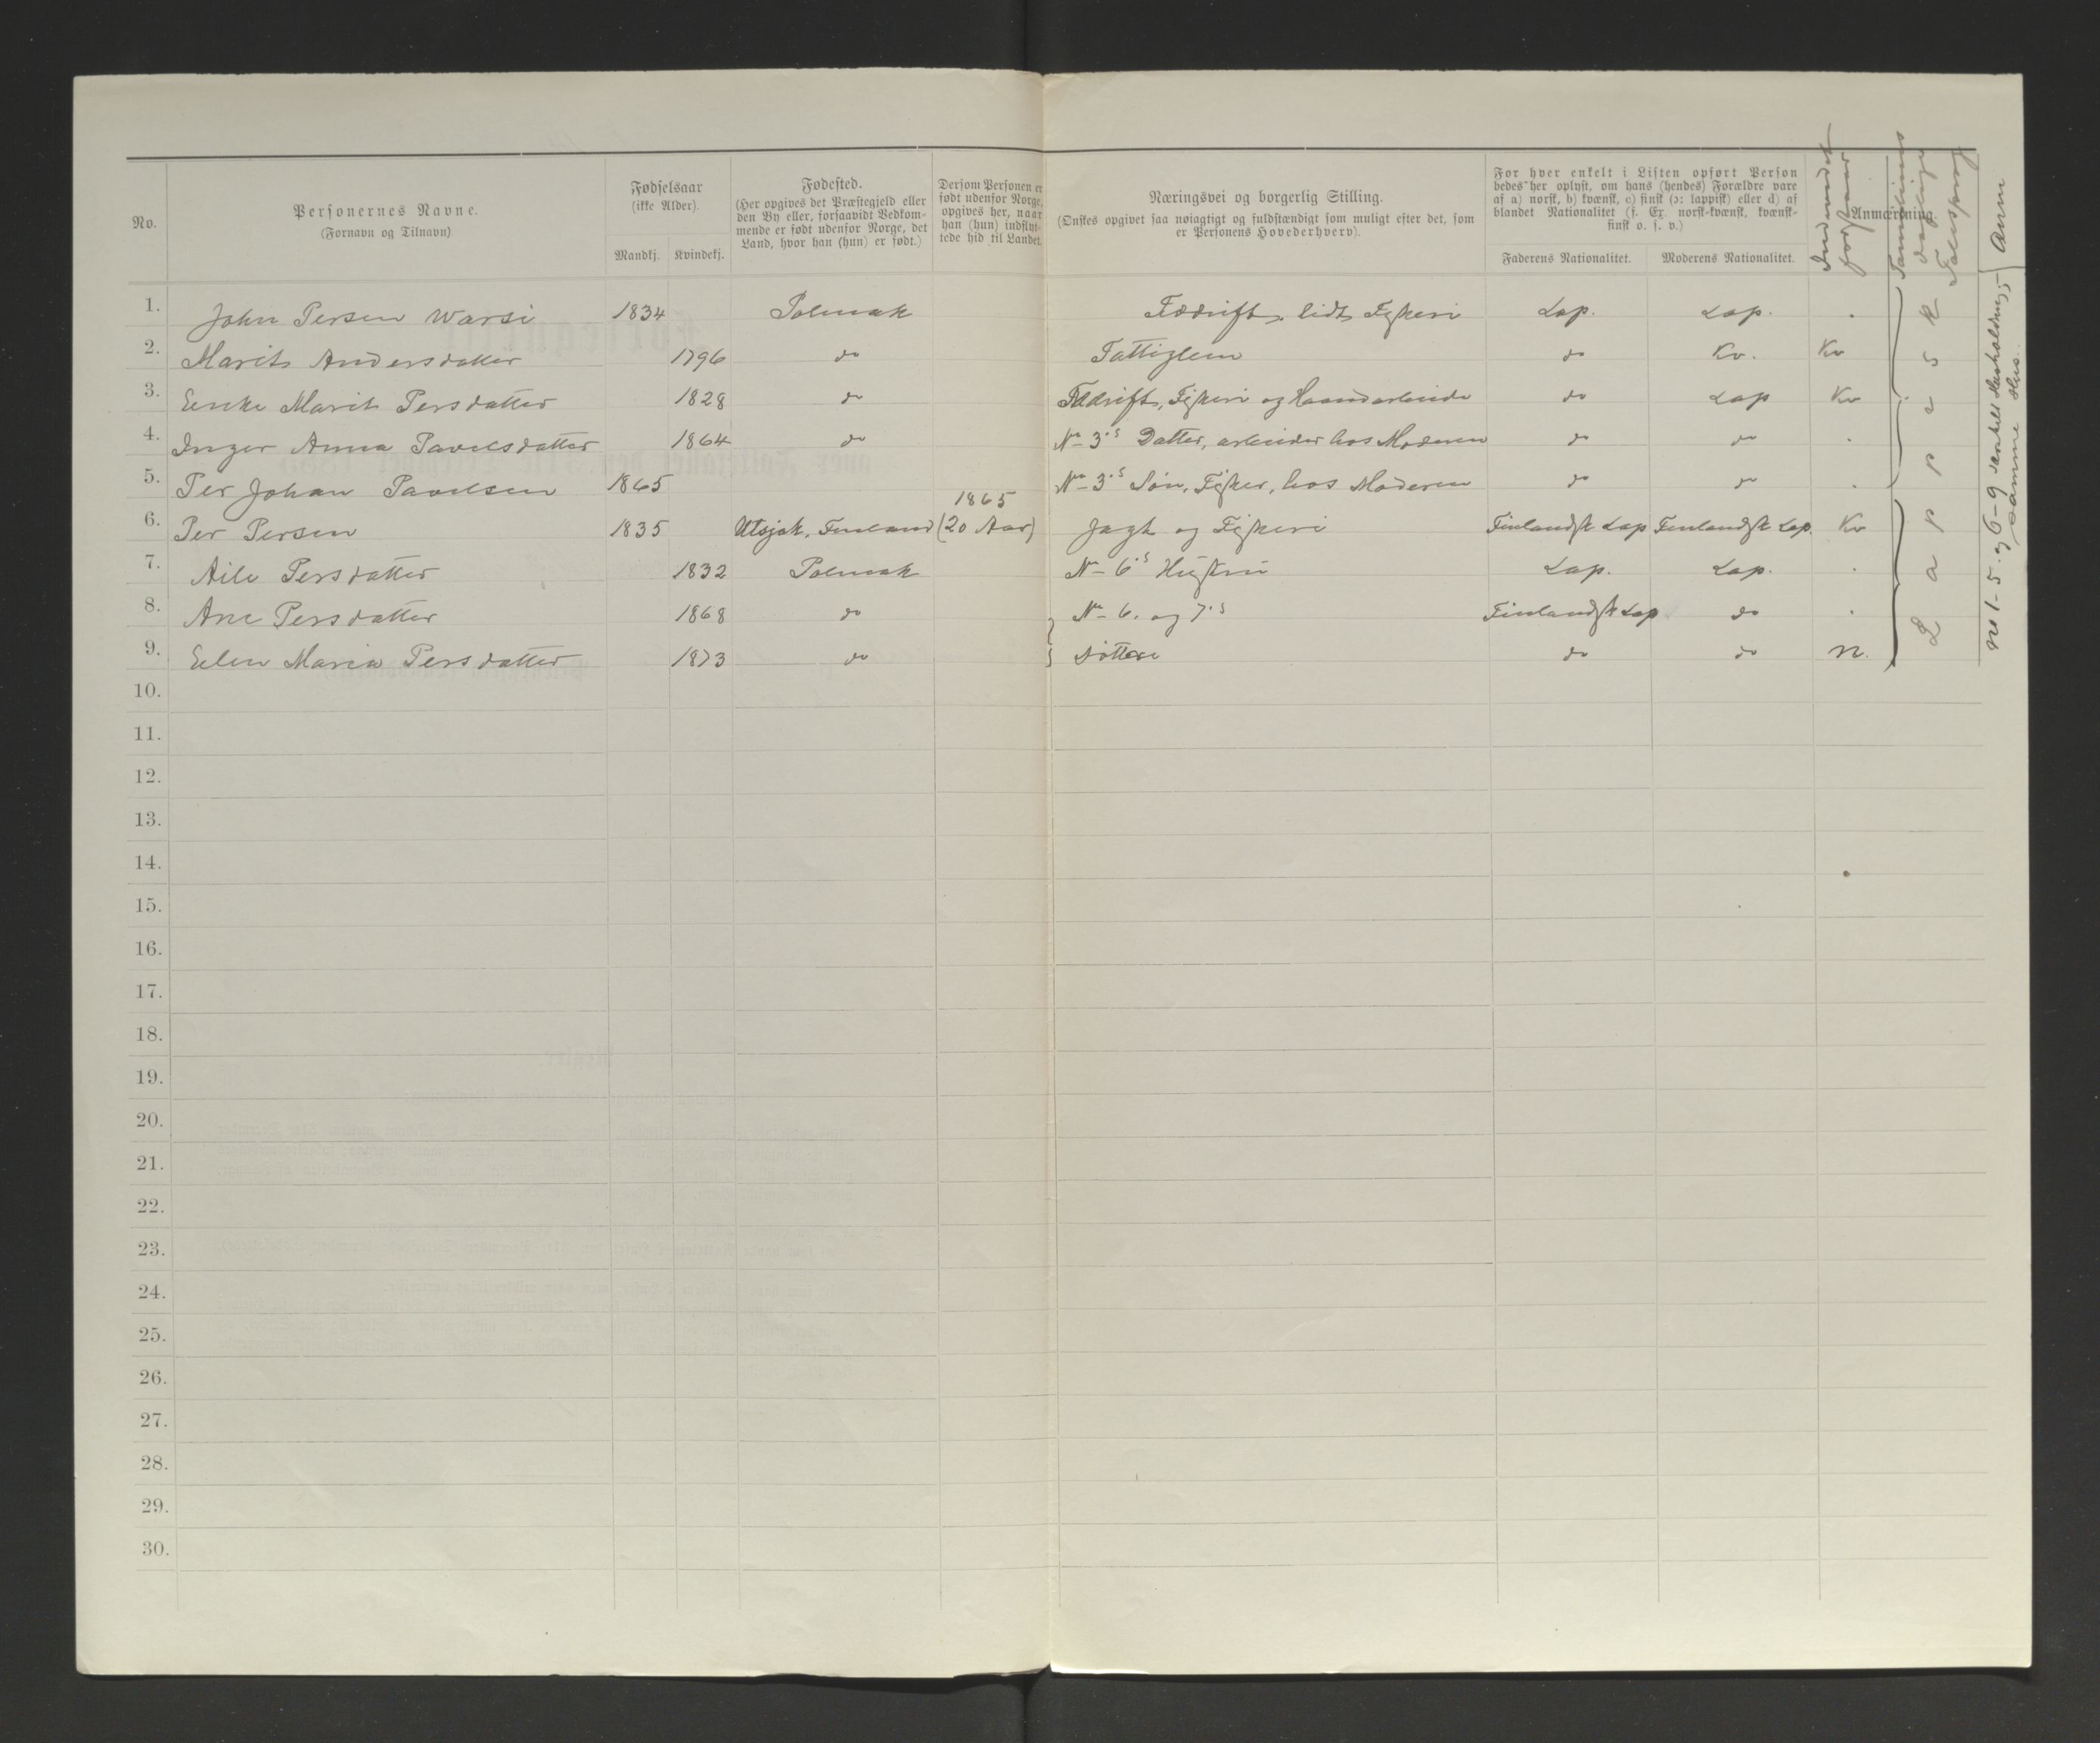 No.
Personernes Navne.
(Fornavn og Tilnavn).
Fødselsaar
(ikke Alder).
Mandkj. Kvindekj.
Fødested.
(Her opgives det Præstegjeld eller
den By eller, forsaavidt Vedkom-
mende er født udenfor Norge, det
Land, hvor han (hun) er født.)
Dersom Personen er
født udenfor Norge,
opgives her, naar
han (hun) indflyt-
tede hid til Landet.
Næringsvei og borgerlig Stilling.
(Ønskes opgivet saa nøiagtigt og fuldstændigt som muligt efter det, som
er Personens Hovederhverv).
For hver enkelt i Listen opført Person
bedes her oplyst, om hans (hendes) Forældre vare
af a) norsk, b) kvænsk, c) finsk (ɔ: lappisk) eller d) af
blandet Nationalitet (f. Ex. norsk-kvænsk, kvænsk-
finsk o. s. v.)
Faderens Nationalitet. Moderens Nationalitet.
Anmærkning.
Familiens
daglige
Talesprog
Anm
1. John Persen Warsi 1834 Polmak Fædrift, lidt Fiskeri Lap. Lap. .
2. Marit Andersdatter 1796 do Fattiglem do Kv. Kv
3. Marit Persdatter 1828 do Fædrift, Fiskeri og Haandarbeide do Lap Kv
4. Inger Anna Pavelsdatter 1864 do No 3's Datter, arbeider hos Moderen do do .
5. Per Johan Pavelsen 1865 No 3's Søn, Fisker, hos Moderen do do .
1865
6. Per Persen 1835 Utsjok, Finland (20 Aar) Jagt og Fiskeri Finlandsk Lap Finlandsk Lap. Kv
7. Aile Persdatter 1832 Polmak No 6's Hustru Lap. Lap. .
8. Ane Persdatter 1868 do No 6. og 7's Finlandsk Lap do .
9. Elen Maria Persdatter 1873 do Døttre do do N.
Lappesk
No 1-5. og 6-9 særskilt Husholdning;
samme Hus.
10.
11.
12.
13.
14.
15.
16.
17.
18.
19.
20.
21.
22.
23.
24.
25.
26.
27.
28.
29.
30.